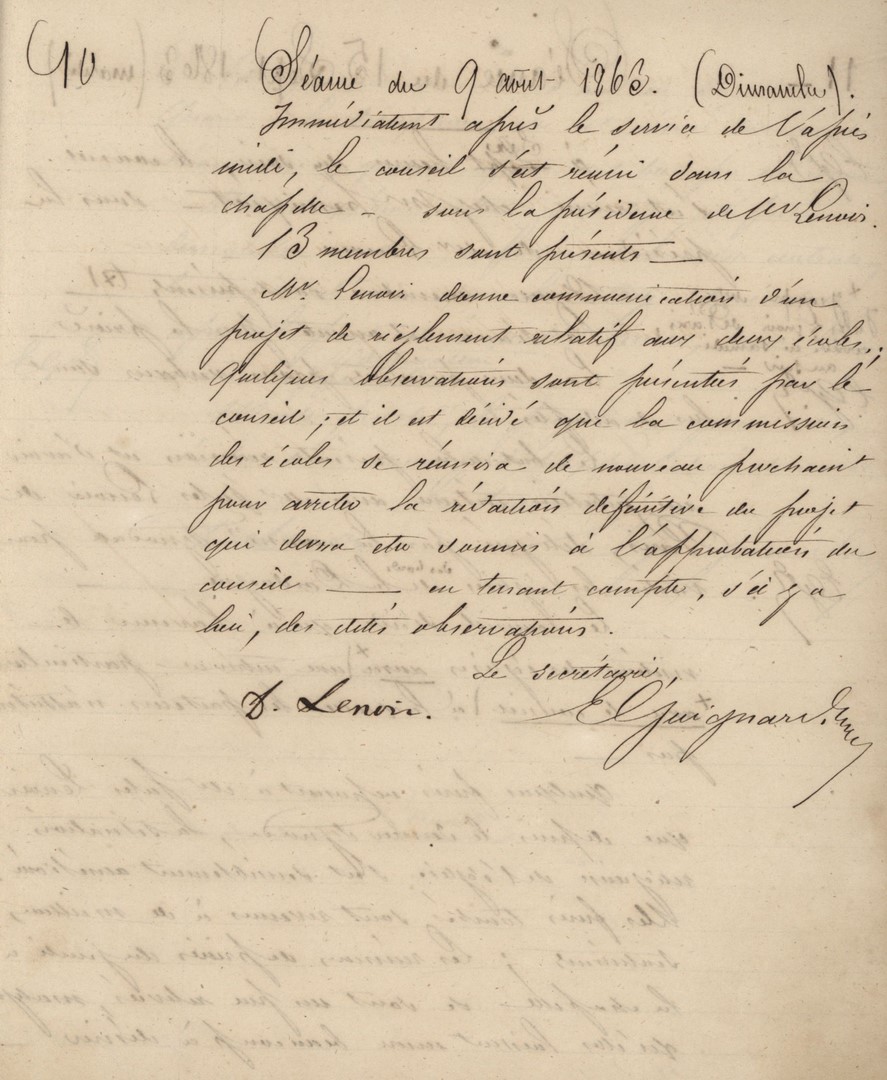 10
Séance du 9 août 1863. (Dimanche).
Immédiatemt après le service de l'après
midi, le conseil s'est réuni dans la
chapelle - sous la présidence de Mr Lenoir.
13 membres sont présents —
Mr. Lenoir donne communication d'un
projet de réglement relatif aux deux écoles.
Quelques observations sont présentées par le
conseil ; et il est décidé que la commission
des écoles se réunira de nouveau prochaint
pour arrêter la rédaction définitive du projet
qui devra être soumis à l'approbation du
conseil — en tenant compte, s'il y a
lieu, des dites observations.
Le secrétaire,
D. Lenoir.
E Guignard